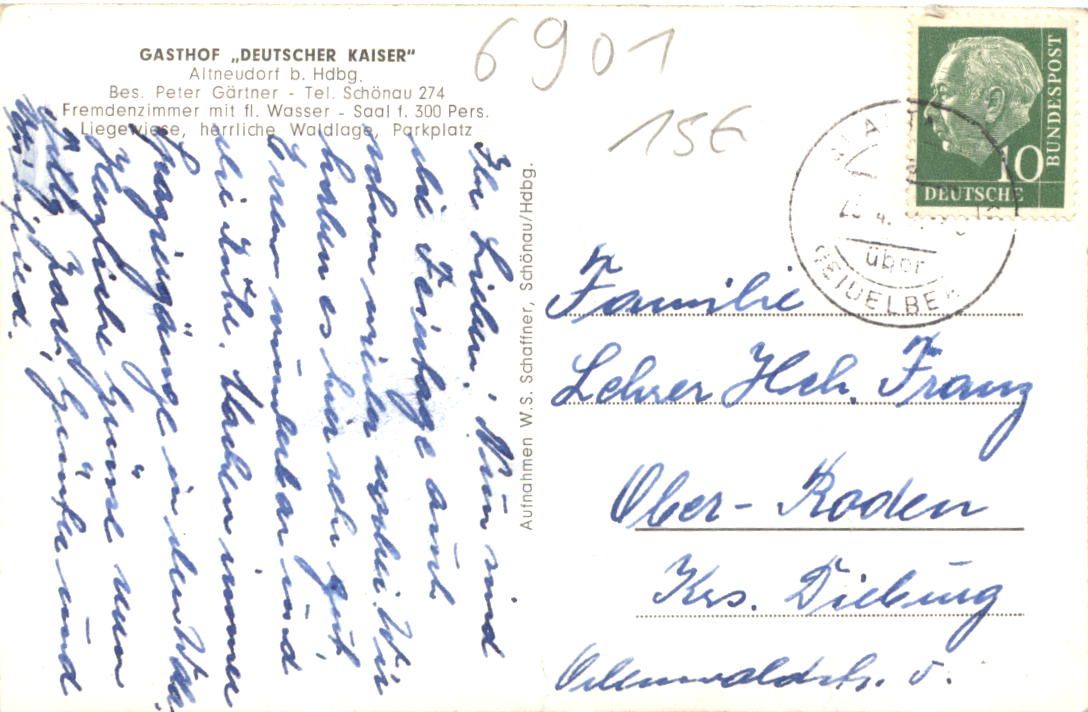 GASTHOF „DEUTSCHER KAISER"
Altneudorf b. Hdbg.
Bes. Peter Gärtner - Tel. Schönau 274
Fremdenzimmer mit fl. Wasser - Saal f. 300 Pers.
Liegewiese, herrliche Waldlage, Parkplatz
6901
15€
10
DEUTSCHE
BUNDESPOST
über
HEIDELBERG
Aufnahmen W.S. Schaffner, Schönau/Hdbg.
Ihr Lieben! Nun sind
die Feiertage auch
schon wieder vorbei. Wir
haben es hier sehr gut,
Essen wunderbar und
die Ruhe. Machen immer
Spaziergänge in den Wald.
Herzliche Grüße nun
Karl, Günter und
Familie
Lehrer Hch. Franz
Ober-Roden
Krs. Dieburg
Odenwaldstr. 5.